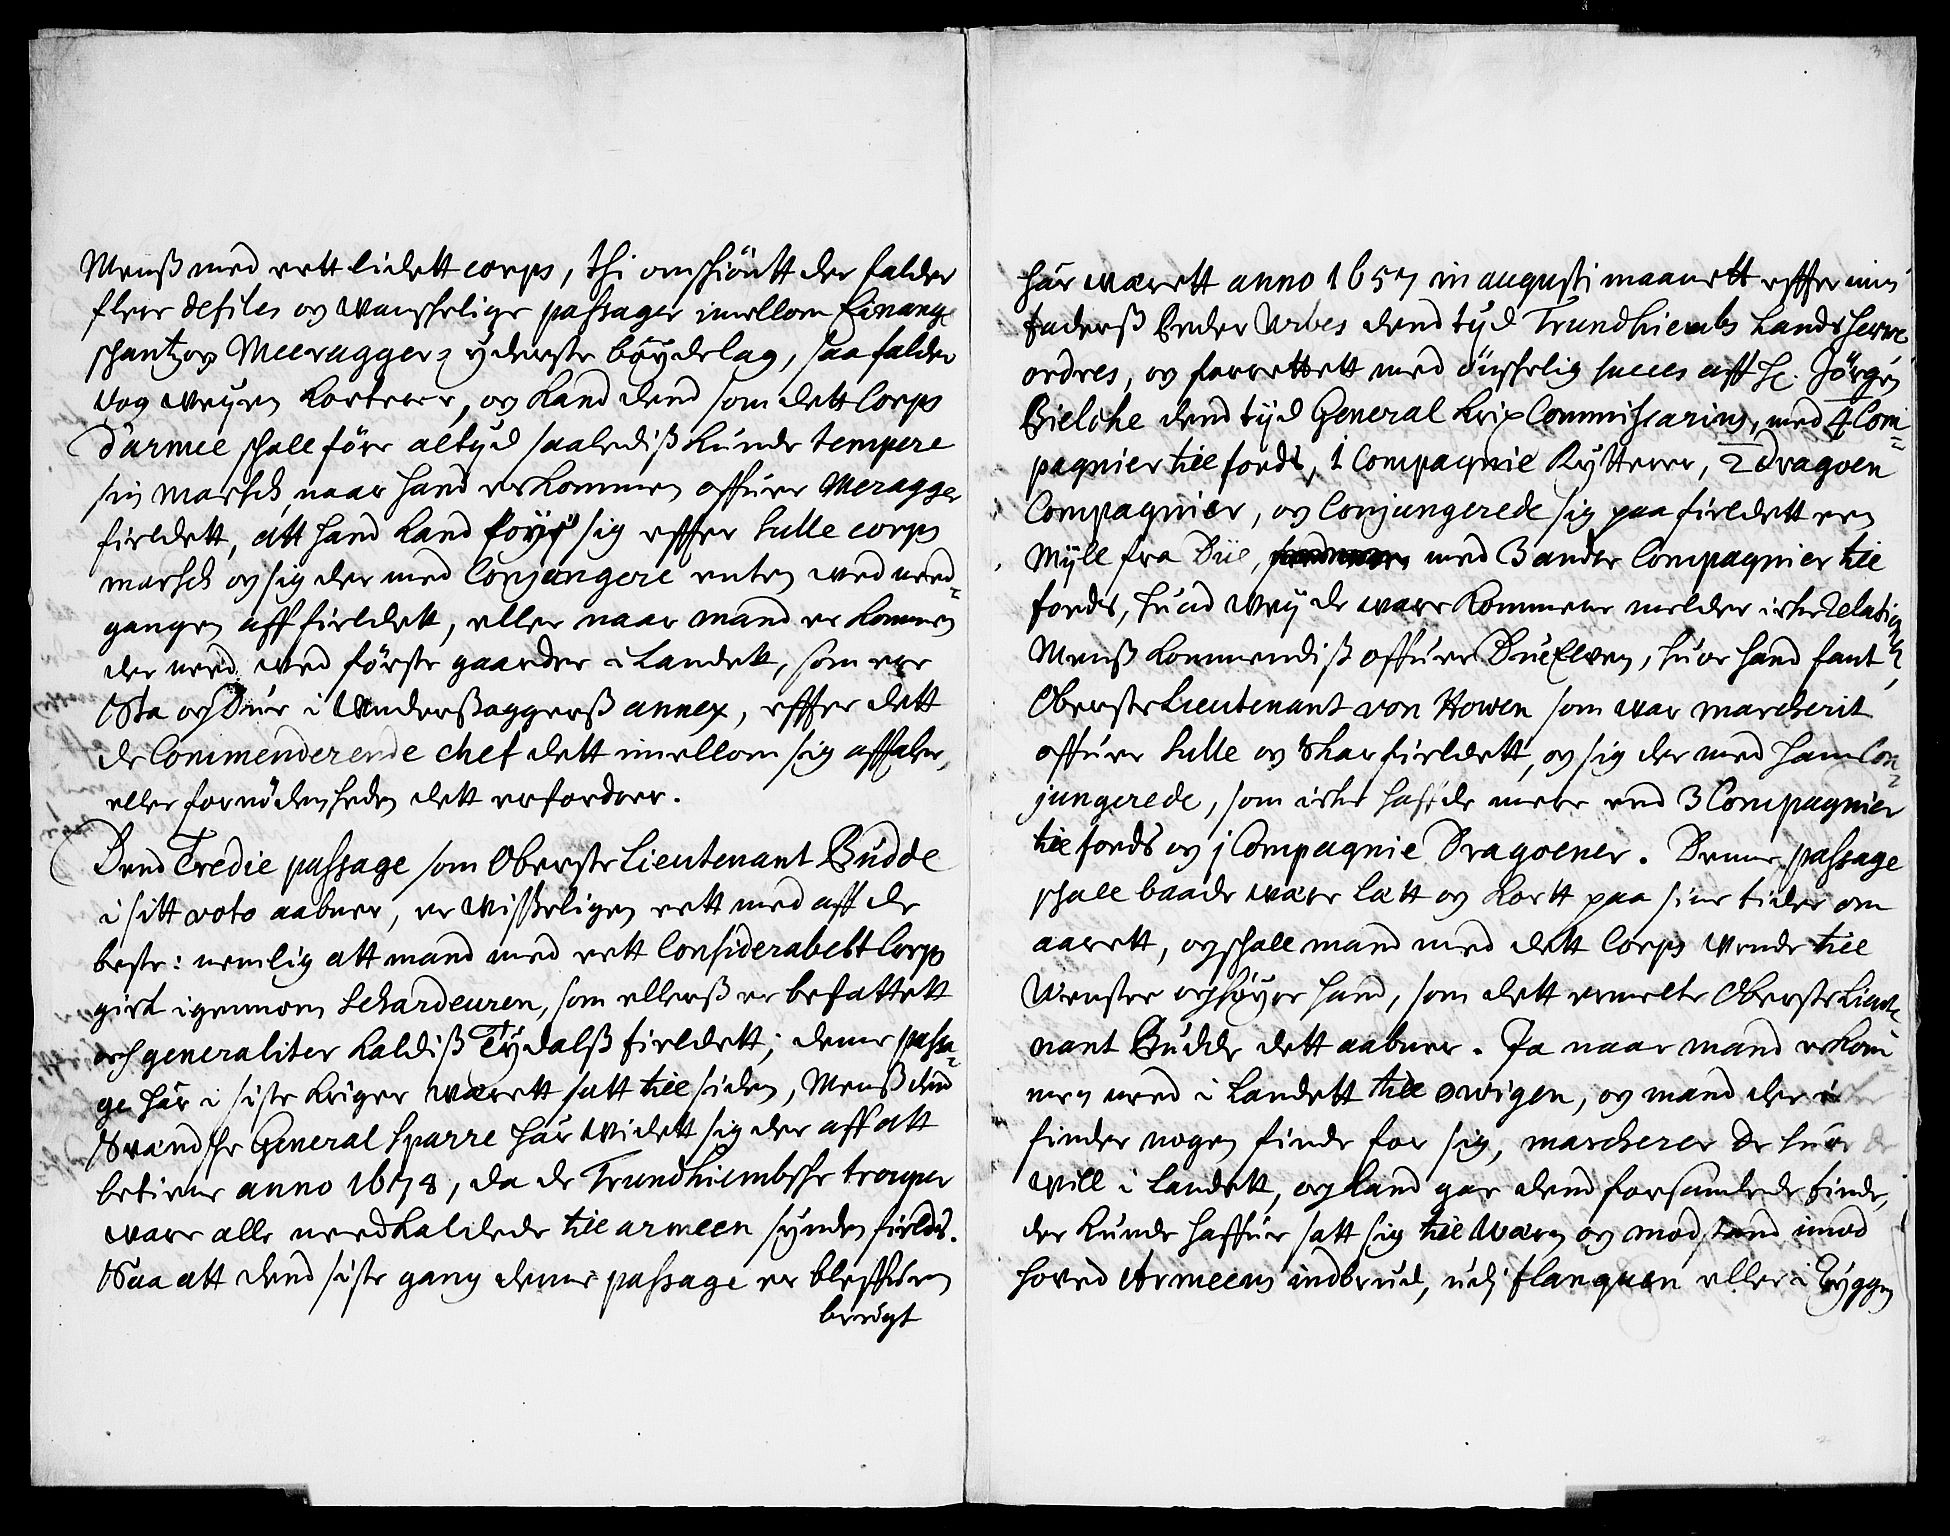 Menß med eett lidett corps, thi omschiöntt der falder
flere defiles og wanschelige passager imellom Einange
schantz og Meeraggerz yderste böydelag, saa falder
dog weyen kortere, og kand dend som dett Corps
d'armee schall före altyd saalediß kunde tempere
sin marsch naar hand er kommen offuer Meragger
fieldett, att hand kand föye sig effter hulle corps
marsch og sig der med Conjungere enten wed need=
gangen aff fieldett, eller naar mand er kommen
der need wed förste gaarder i Landett, som ere
Sta og Duve i Underßaggerß annex, effter dett
de Commenderende chef dett imellom sig afftaler,
eller fornödenheden dett erfordrer.
Dend Tredie passage som Oberste Lieutenant Budde
i sitt voto aabner, er wisseligen eett med aff de
beste: nemlig att mand med eett Considerabelt Corps
gick igennom Schardeuren, som ellerß er befattett
och generaliter kaldiß Tydalß fieldett; denne passa=
ge har i siste kriger wærett satt till siden, Menß dend
Svændsche General Sparre har widett sig der aff att
betiene anno 1678, da de Trundhiembsche troupper
ware alle needkaldede till armeen synden fields.
Saa att dend siste gang denne passage er bleffuen
brügt
3
har wærett anno 1657 in augusti maanett effter min
faderß Peder Wibes dend tyd Trundhiembs Landsherre
ordres, og forrettett med önschelig succes aff H. Jörgen
Bielche dend tyd General Krix Commissarius, med 4 Com=
pagnier till fods, 1 Compagnie Rytterer, 2 Dragoen
Compagnier, og Conjungerede sig paa fieldett een
Myll fra Düe, med 3 andre Compagnier till
fods, huad wey de ware kommene melder icke relation
Menß kommendiß offuer Dueelven, huor hand fant
Oberste Lieutenant von Howen som war marcherit
offuer hulle og Skarfieldett, og sig der med ham Con=
jungerede, som icke haffde mere end 3 Compagnier
till fods og 1 Compagnie Dragoener. Denne passage
schall baade være lætt og kortt paa sine tider om
aarett, og schall mand med dett Corps wende till
Wenstre og höyre hand, som dett ermelte Oberste Lieute=
nant Budde dett aabner. Ja naar mand er kom=
men need i Landett till Owigen, og mand der ei
finder nogen finde for sig, marcherer de huor de
will i Landett, og kand gøre dend forsamlede finde,
der kunde haffue satt sig till wærn og modstand imod
hoved Armeens indbrud, udj flanquen eller i Ryggen